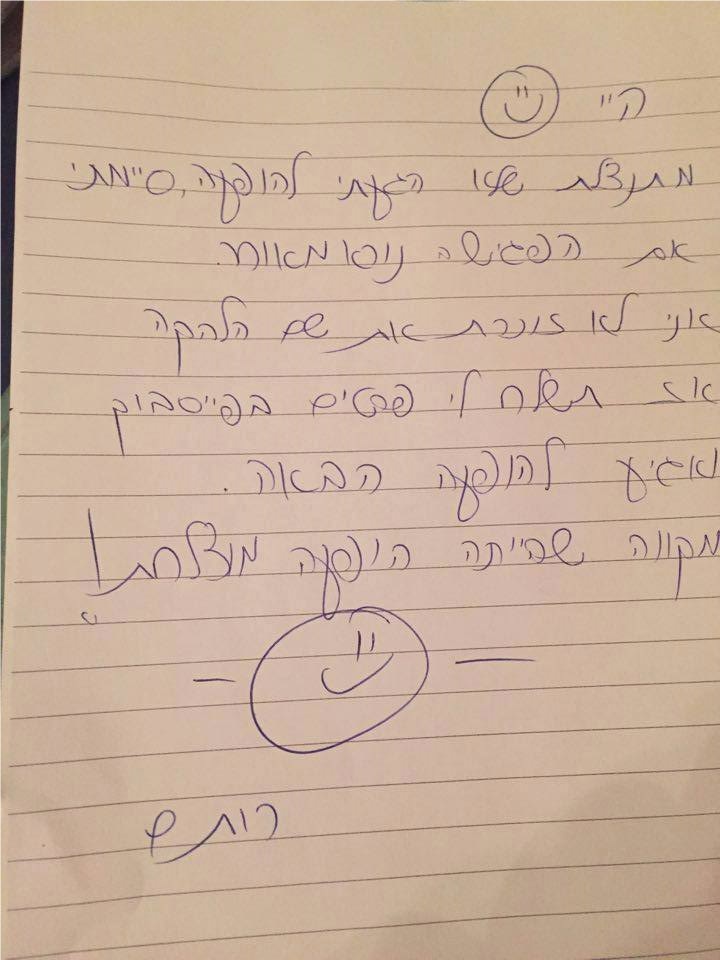 היי
מתנצלת שלא הגעתי להופעה, סיימתי
את הפגישה נורא מאוחר.
אני לא זוכרת את שם הלהקה
אז תשלח לי פרטים בפייסבוק
ואגיע להופעה הבאה.
מקווה שהייתה הופעה מוצלחת!
רותם